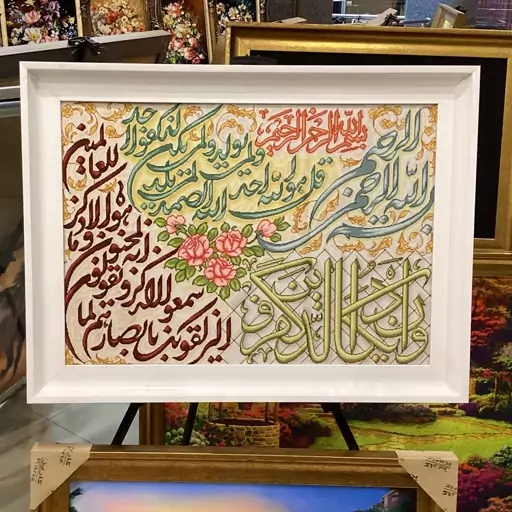 بسم الله الرحمن الرحيم
بسم الله الرحمن الرحيم
قل هو الله احد الله الصمد لم يلد
ولم يولد ولم يكن له كفوا احد
وان يكاد الذين كفروا
ليزلقونك بابصارهم لما
سمعوا الذكر ويقولون
انه لمجنون وما
هو الا ذكر
للعالمين